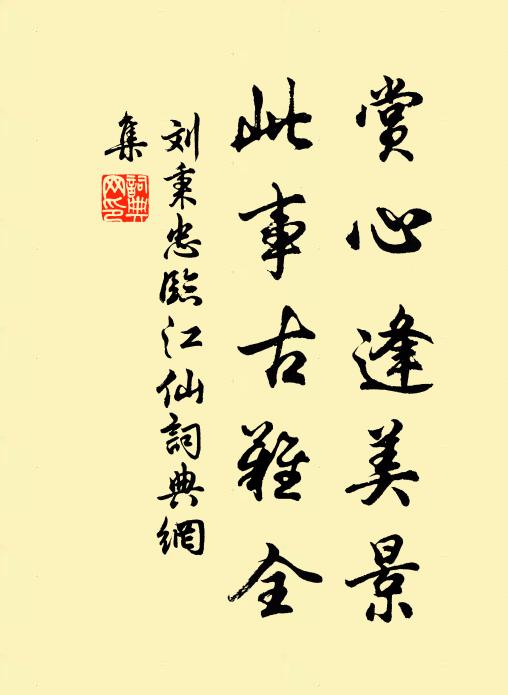 赏心逢美景
此事古难全
刘秉忠臨江仙詞典網
集
詞典
网印